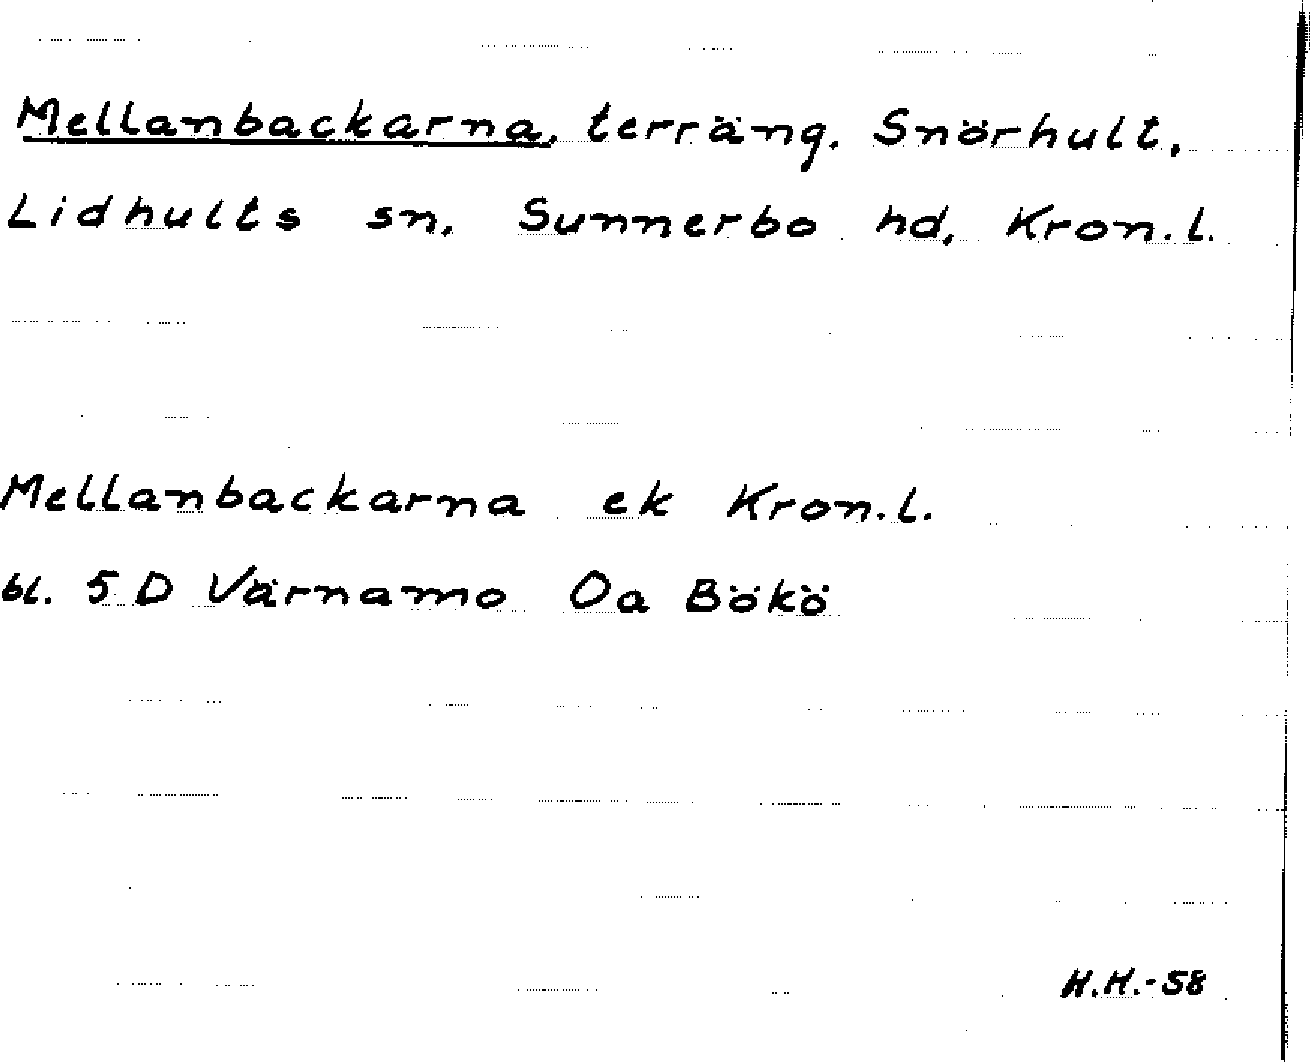 Mellanbackarna, terräng, Snörhult,
Lidhults sn, Sunnerbo hd, Kron.l.
Mellanbackarna ek Kron.l.
bl. 5 D Värnamo Oa Bökö
H.H.-58